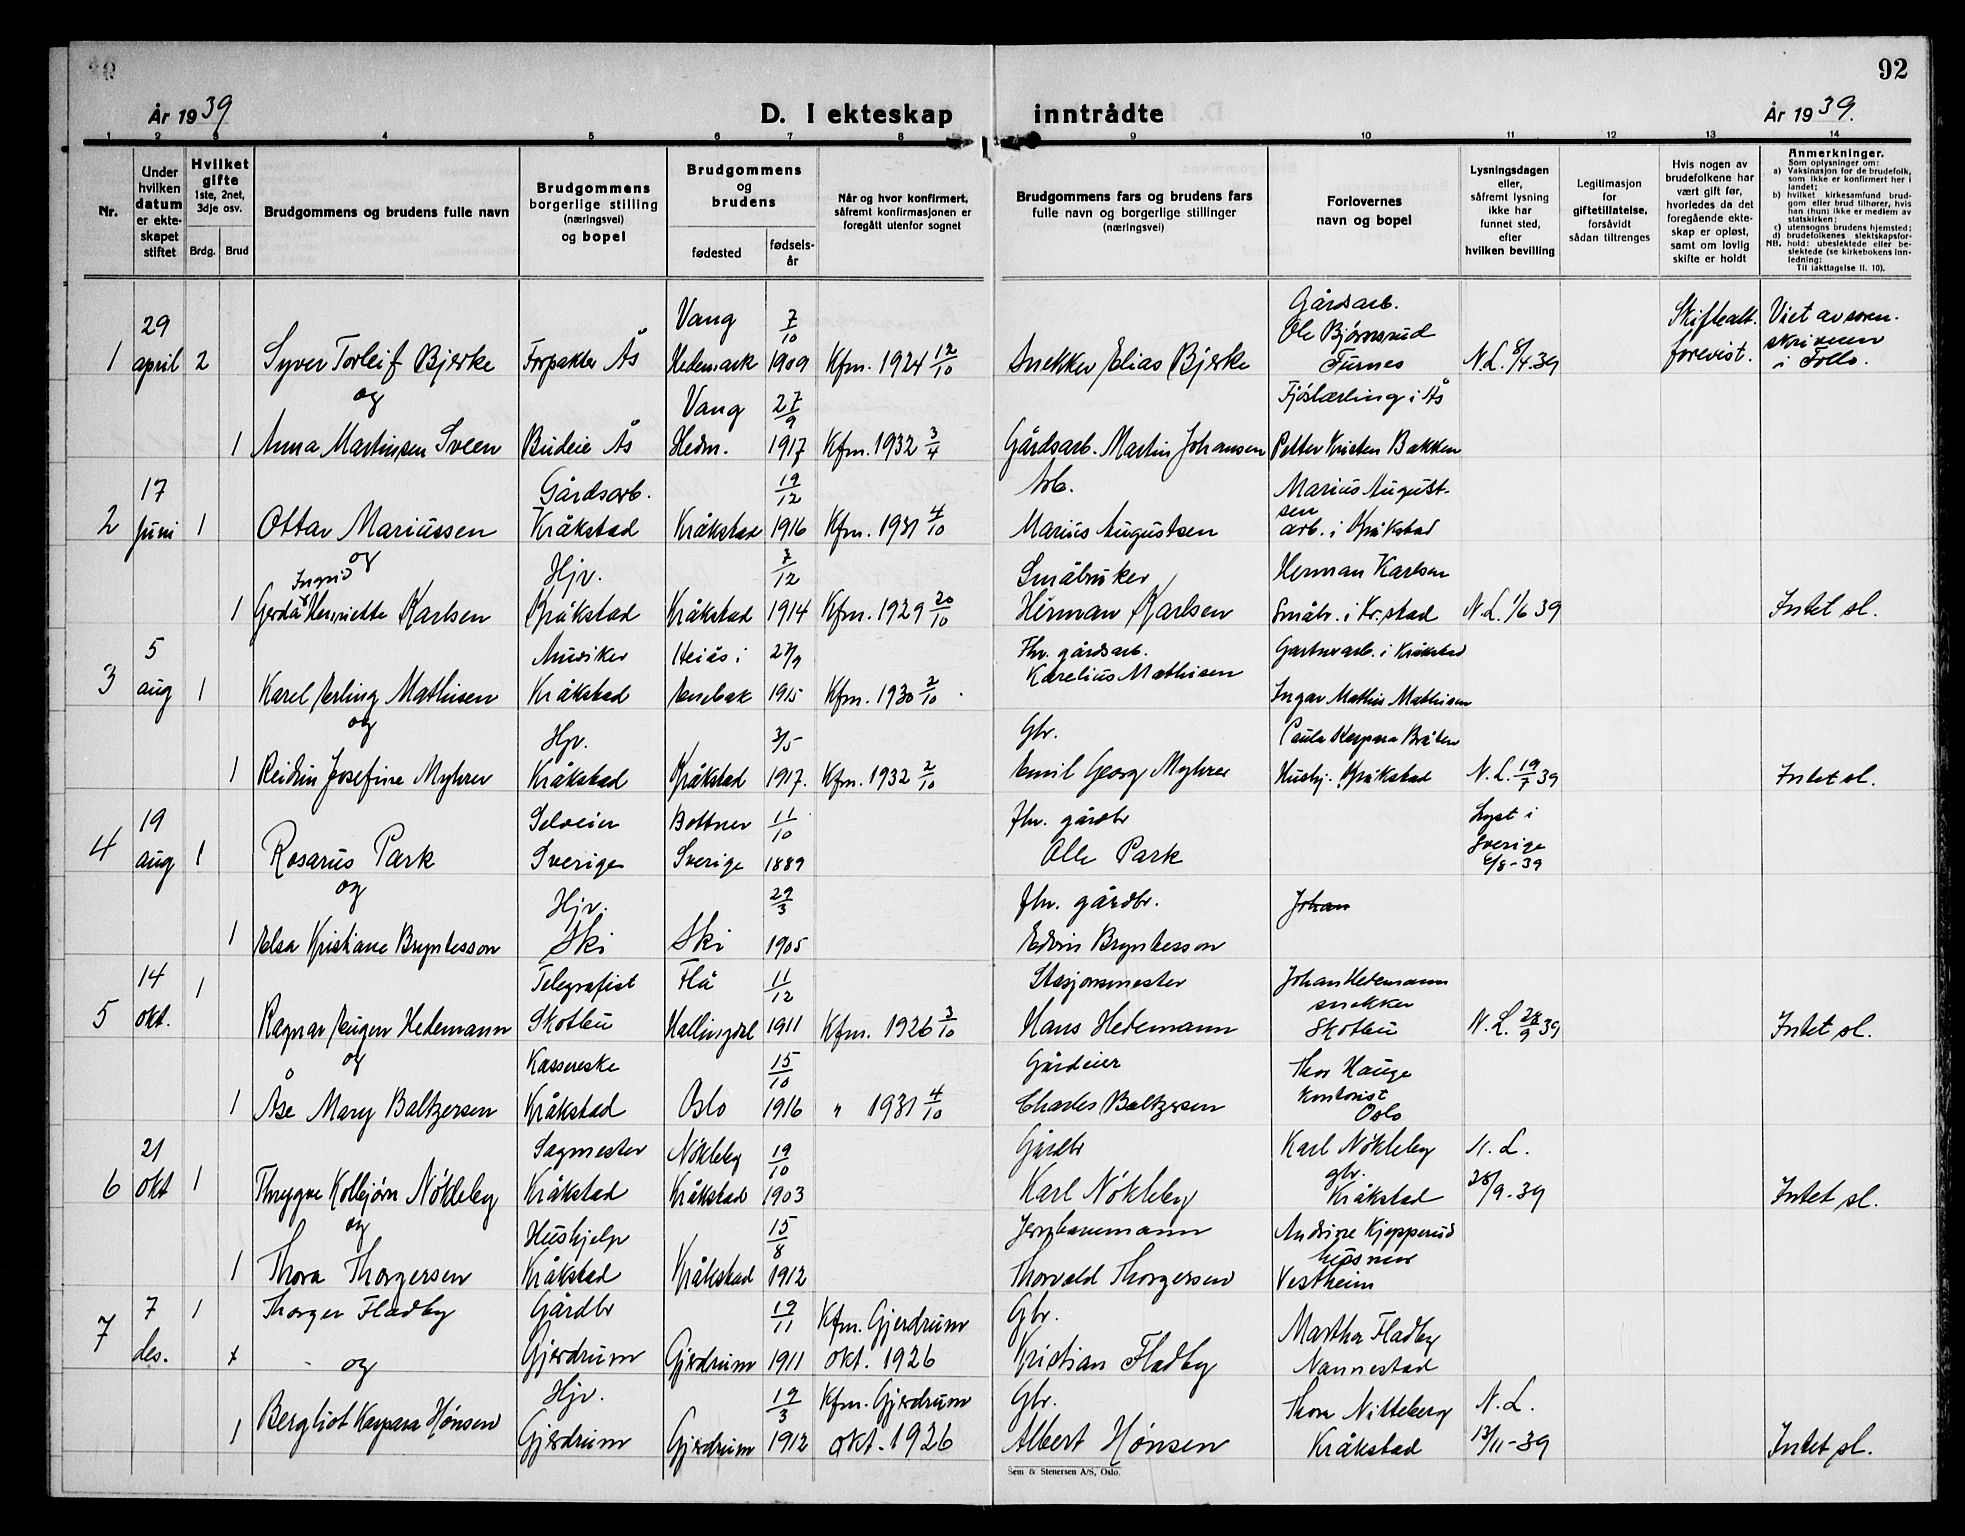 92
År 1939
D. I ekteskap inntrådte
År 1939.
1 2 3 4 5 6 7 8 9 10 11 12 13 14
Nr.
Under hvilken datum er ekteskapet stiftet
Hvilket gifte 1ste, 2net, 3dje osv.
Brdg. Brud
Brudgommens og brudens fulle navn
Brudgommens borgerlige stilling (næringsvei) og bopel
Brudgommens og brudens
fødested
fødselsår
Når og hvor konfirmert, såfremt konfirmasjonen er foregått utenfor sognet
Brudgommens fars og brudens fars fulle navn og borgerlige stillinger (næringsvei)
Forlovernes navn og bopel
Lysningsdagen eller, såfremt lysning ikke har funnet sted, efter hvilken bevilling
Legitimasjon for giftetillatelse, forsåvidt sådan tiltrenges
Hvis nogen av brudefolkene har vært gift før, hvorledes da det foregående ekteskap er opløst, samt om lovlig skifte er holdt
Anmerkninger.
Som oplysninger om:
a) Vaksinasjon for de brudefolk, som ikke er konfirmert her i landet;
b) hvilket kirkesamfund brudgom eller brud tilhører, hvis han (hun) ikke er medlem av statskirken;
c) utensogns brudens hjemsted;
d) brudefolkenes slektskapsforhold: ubeslektede eller beslektede (se kirkebokens innledning:
NB. Til iakttagelse II. 10).
1 29 april 2 Syver Torleif Bjerke Forpakter Ås Vang Hedemark 7/10 1909 Kfm. 1924 12/10 Snekker Elias Bjerke Gårdsarb. Ole Bjørnsrud Furnes N.L. 8/4 39 Skifteatt. forevist. Viet av sorenskriveren i Follo.
og
1 Anna Martinsen Sveen Budeie Ås Vang Hedm. 27/9 1917 Kfm. 1932 3/4 Gårdsarb. Martin Johansen Fjøslærling i Ås Petter Kristen Bakken
2 17 Juni 1 Ottar Mariussen Gårdsarb. Kråkstad Kråkstad 19/12 1916 Kfm. 1931 4/10 Arb. Marius Augustsen Marius Augustsen arb. i Kråkstad
og
1 Gerda Ingrid Henriette Karlsen Hjv. Kråkstad Kråkstad 7/12 1914 Kfm. 1929 20/10 Småbruker Herman Karlsen Herman Karlsen Småbr. i Kr.stad N.L. 1/6 39 Intet sl.
3 5 aug 1 Karel Erling Mathisen Musiker Kråkstad Heiås i Enebak 27/9 1915 Kfm. 1930 2/10 Fhv. gårdsarb. Karelius Mathisen Gartnerarb. i Kråkstad Ingar Mathis Mathisen
og
1 Reidun Josefine Myhrer Hjv. Kråkstad Kråkstad 3/5 1917. Kfm. 1932 2/10 Gbr. Emil Georg Myhrer Paula Kaspara Bråten Hushj. Kråkstad N.L. 19/7 39 Intet sl.
4 19 aug 1 Rosarus Park Selveier Sverige Bottner Sverige 11/10 1889 fhv. gårdbr Olle Park Lyst i Sverige 6/8-39
og
1 Elsa Kristiane Bryntesson Hjv. Ski Ski 29/3 1905 fhv. gårdbr. Edvin Bryntesson Johan
5 14 okt. 1 Ragnar Eugen Hedemann Telegrafist Skotbu Flå Hallingdal 11/12 1911 Kfm. 1926 3/10 Stasjonsmester Hans Hedemann Johan Hedemann snekker Skotbu N.L. 28/9 39 Intet sl.
og
1 Åse Mary Baltzersen Kassereske Kråkstad Oslo 15/10 1916 " 1931 4/10 Gårdeier Charles Baltzersen Thor Hauge Kontorist Oslo
6 21 okt 1 Thrygve Kolbjørn Nökleby Sagmester Kråkstad Nökleby Kråkstad 19/10 1903 Gårdbr Karl Nökleby Karl Nökleby gbr. Kråkstad N.L. 28/9-39 Intet sl.
og
1 Thora Thorgersen Hushjelp Kråkstad Kråkstad 15/8 1912 Jernbanemann Thorvald Thorgersen Andrine Kjopperud Vestheim
7 7 des. 1 Thorger Fladby Gårdbr Gjerdrum Gjerdrum 19/11 1911 Kfm. Gjerdrum okt. 1926 Gbr. Kristian Fladby Martha Fladby Nannestad
og
1 Bergliot Kaspara Hønsen Hjv. Gjerdrum Gjerdrum 19/3 1912 Kfm. Gjerdrum okt. 1926 Gbr. Albert Hønsen Thora Nitteberg Kråkstad N.L. 13/11-39 Intet sl.
Sem & Stenersen A/S, Oslo.